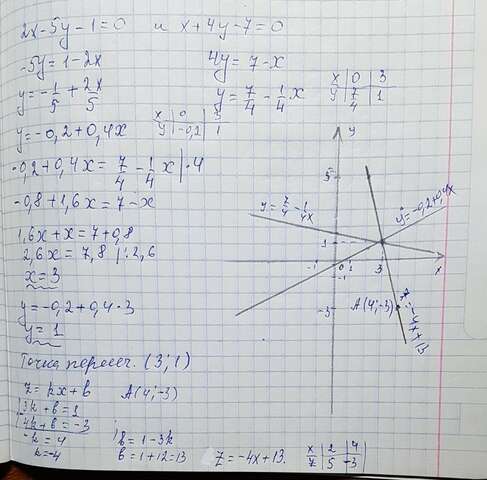 2x-5y-1=0 и x+4y-7=0
-5y=1-2x
4y=7-x
y=-1/5+2x/5
y=7/4-1/4x
x | 0 | 3
y | 7/4 | 1
y=-0,2+0,4x
x | 0 | 3
y | -0,2 | 1
-0,2+0,4x=7/4-1/4x |·4
-0,8+1,6x=7-x
1,6x+x=7+0,8
2,6x=7,8 |:2,6
x=3
y=-0,2+0,4·3
y=1
Точка пересеч. (3;1)
z=kx+b A(4;-3)
3k+b=1
4k+b=-3
-k=4
k=-4
b=1-3k
b=1+12=13
z=-4x+13.
x | 2 | 4
z | 5 | -3
y
5
y=7/4-1/4x
y=-0,2+0,4x
1
-1 0 1 3 x
-1
-3
A(4;-3)
z=-4x+13